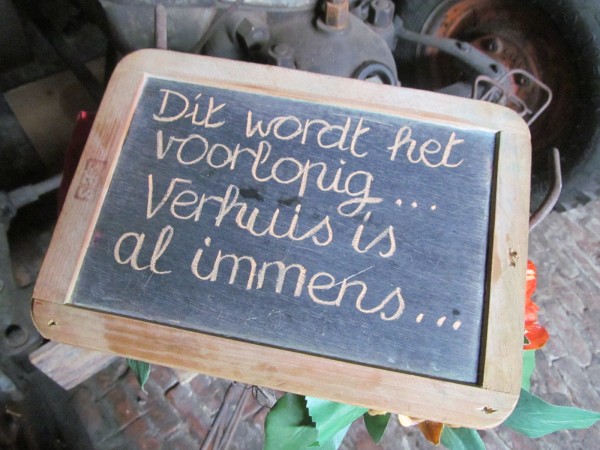 Dit wordt het
voorlopig...
Verhuis is
al immens...